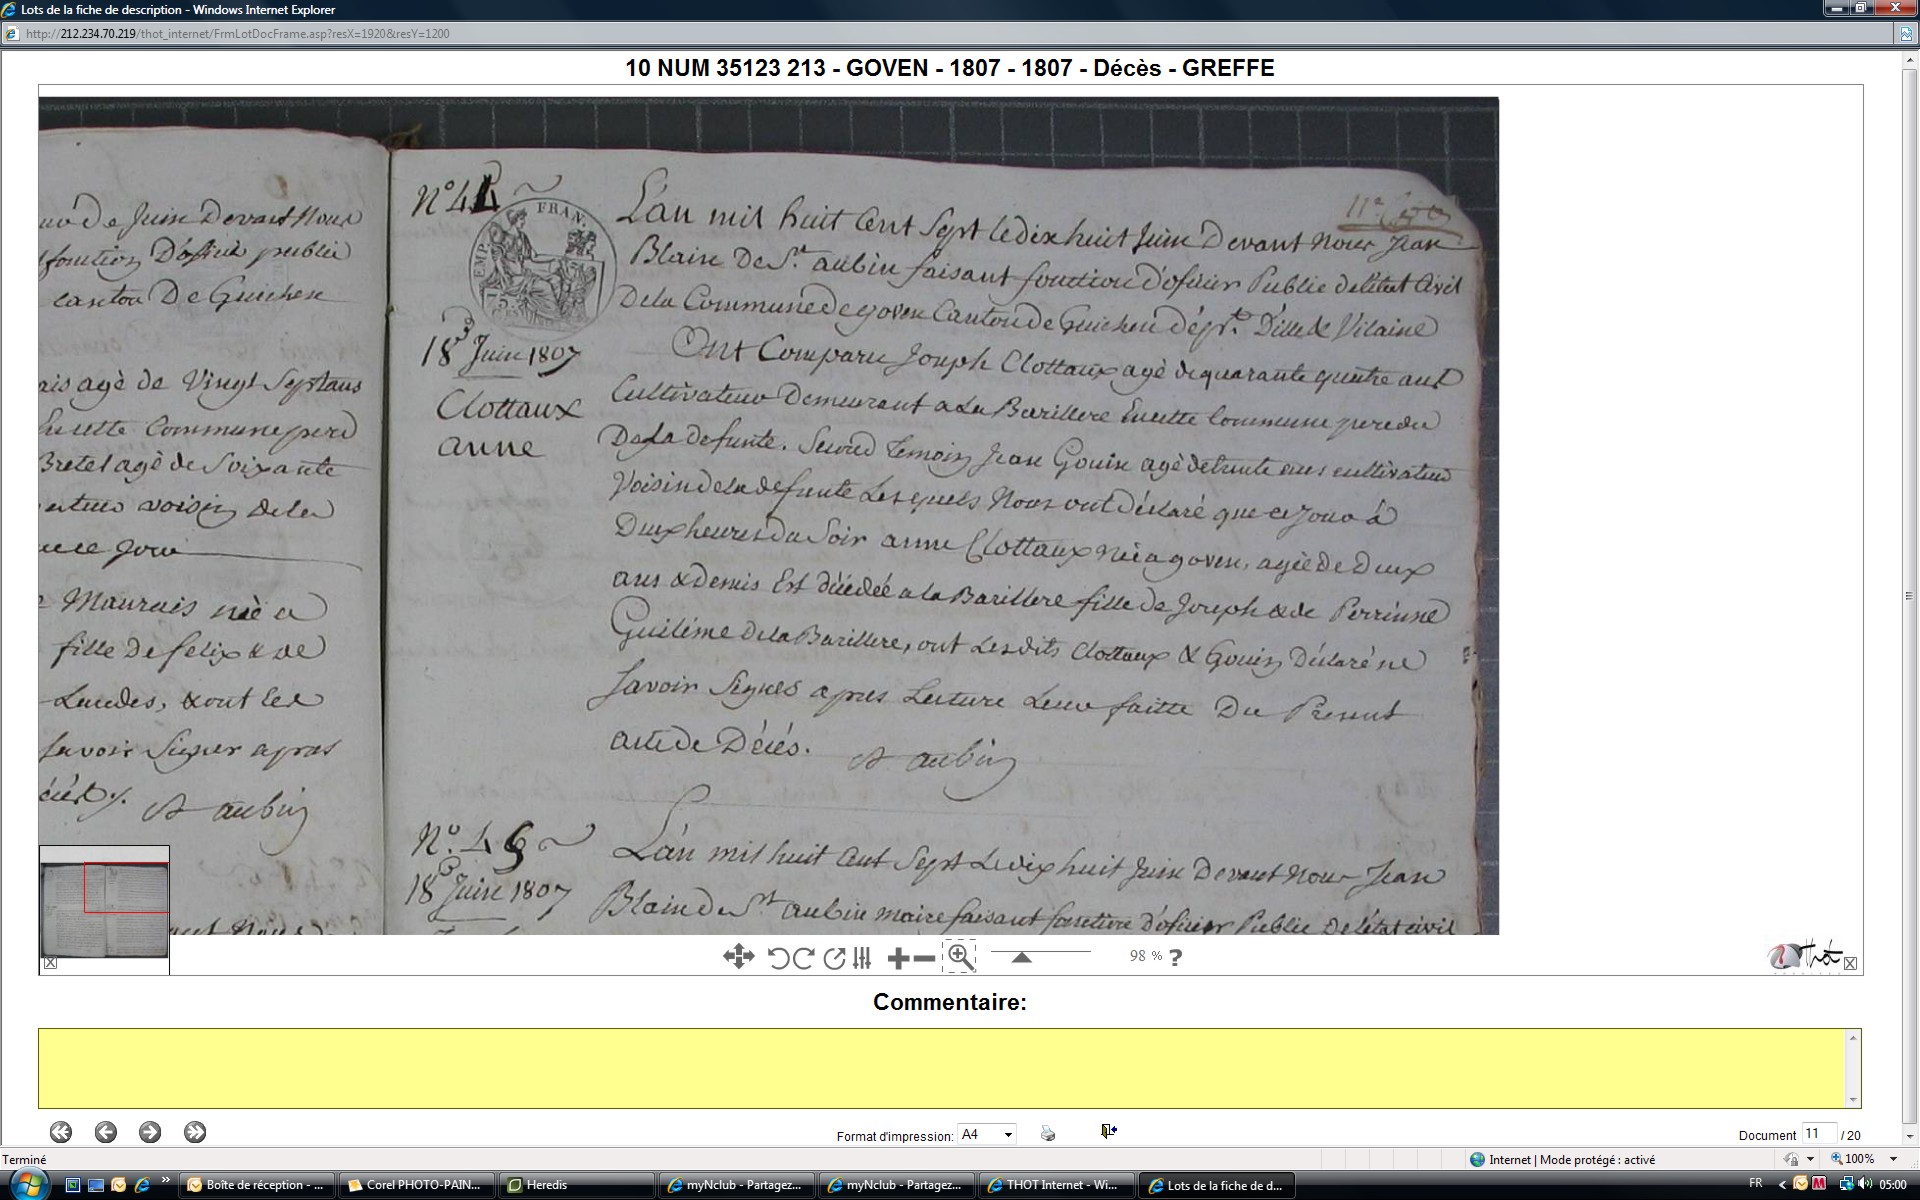 Lots de la fiche de description - Windows Internet Explorer
http://212.234.70.219/thot_internet/FrmLotDocFrame.asp?resX=1920&resY=1200
10 NUM 35123 213 - GOVEN - 1807 - 1807 - Décès - GREFFE
de Juin Devant Nous
fonction D'officie public
canton De Guichen
agé de Vingt Sept ans
cette Commune pere
Bretel agé de Soixante
voisin dela
ce jour
Maurais néé a
fille de felix & de
Landes, & ont les
Savoir Signer apres
St aubin
N° 44
EMP. FRAN.
75
18 Juin 1807
Clottaux
anne
L'an mil huit Cent Sept le dix huit Juin Devant Nous Jean
Blain De St aubin faisant fonction D'oficier Public de l'état Civil
De la Commune de goven Canton de Guichen dépt. D'ille & Vilaine
Ont Comparu Joseph Clottaux agé de quarante quatre ans
Cultivateur Demeurant a La Barillere En cette Commune pere de
De La defunte. Second temoin Jean Gouin agé de trente ans cultivateur
Voisin de la defunte Lesquels Nous ont Déclaré que ce Jour à
Deux heures du Soir anne Clottaux née a goven, agée de Deux
ans & demis Est décédée a la Barillere fille de Joseph & de Perrinne
Guiléme de la Barillere, ont Lesdits Clottaux & Gouin Déclaré ne
Savoir Signer apres Lecture Leur faitte Du Present
acte de Décés.
St aubin
N°. 45
18 Juin 1807
L'an mil huit Cent Sept Le dix huit Juin Devant Nous Jean
Blain De St aubin maire faisant fonction D'oficier Public De l'état civil
98 % ?
Thot
Commentaire:
Format d'impression: A4
Document 11 / 20
Terminé
Internet | Mode protégé : activé
100%
Boîte de réception - ...
Corel PHOTO-PAIN...
Heredis
myNclub - Partagez...
myNclub - Partagez...
THOT Internet - Wi...
Lots de la fiche de d...
FR
05:00